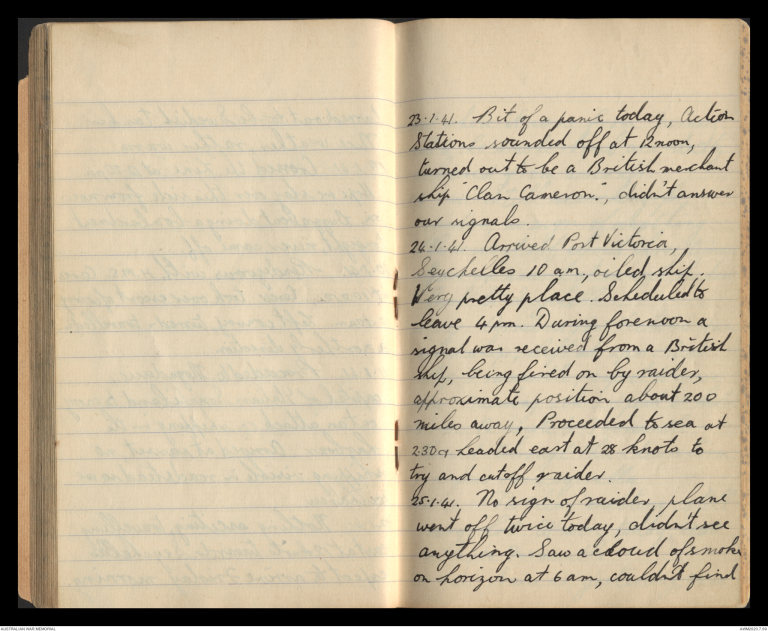 23·1·41. Bit of a panic today, Action
Stations sounded off at 12 noon,
turned out to be a British merchant
ship "Clan Cameron", didn't answer
our signals.
24·1·41. Arrived Port Victoria,
Seychelles 10 am, oiled ship.
Very pretty place. Scheduled to
leave 4 pm. During forenoon a
signal was received from a British
ship, being fired on by raider,
approximate position about 200
miles away, Proceeded to sea at
2.30 & headed east at 28 knots to
try and cut off raider.
25·1·41. No sign of raider, plane
went off twice today, didn't see
anything. Saw a cloud of smoke
on horizon at 6 am, couldn't find
AUSTRALIAN WAR MEMORIAL